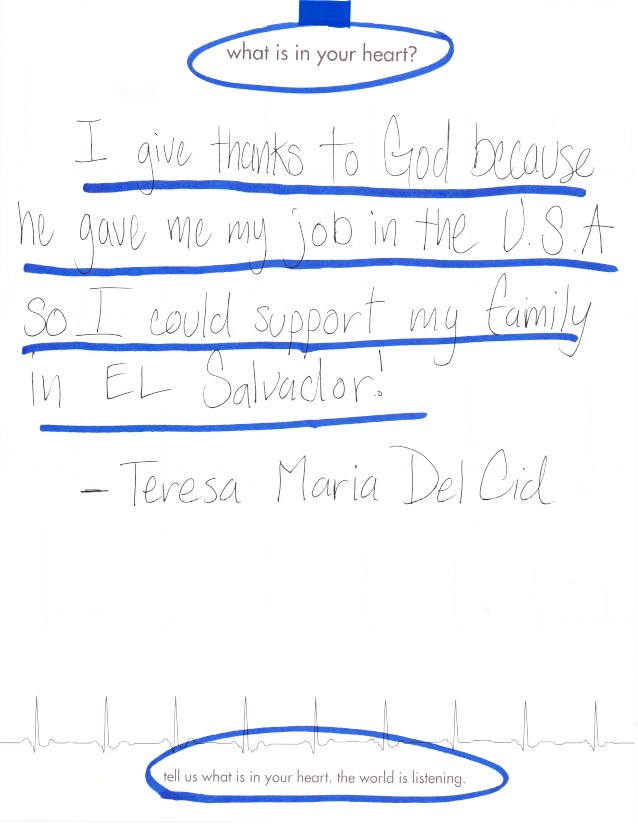 what is in your heart?
I give thanks to God because
he gave me my job in the U.S.A
so I could support my family
in EL Salvador!
- Teresa Maria Del Cid
tell us what is in your heart. the world is listening.